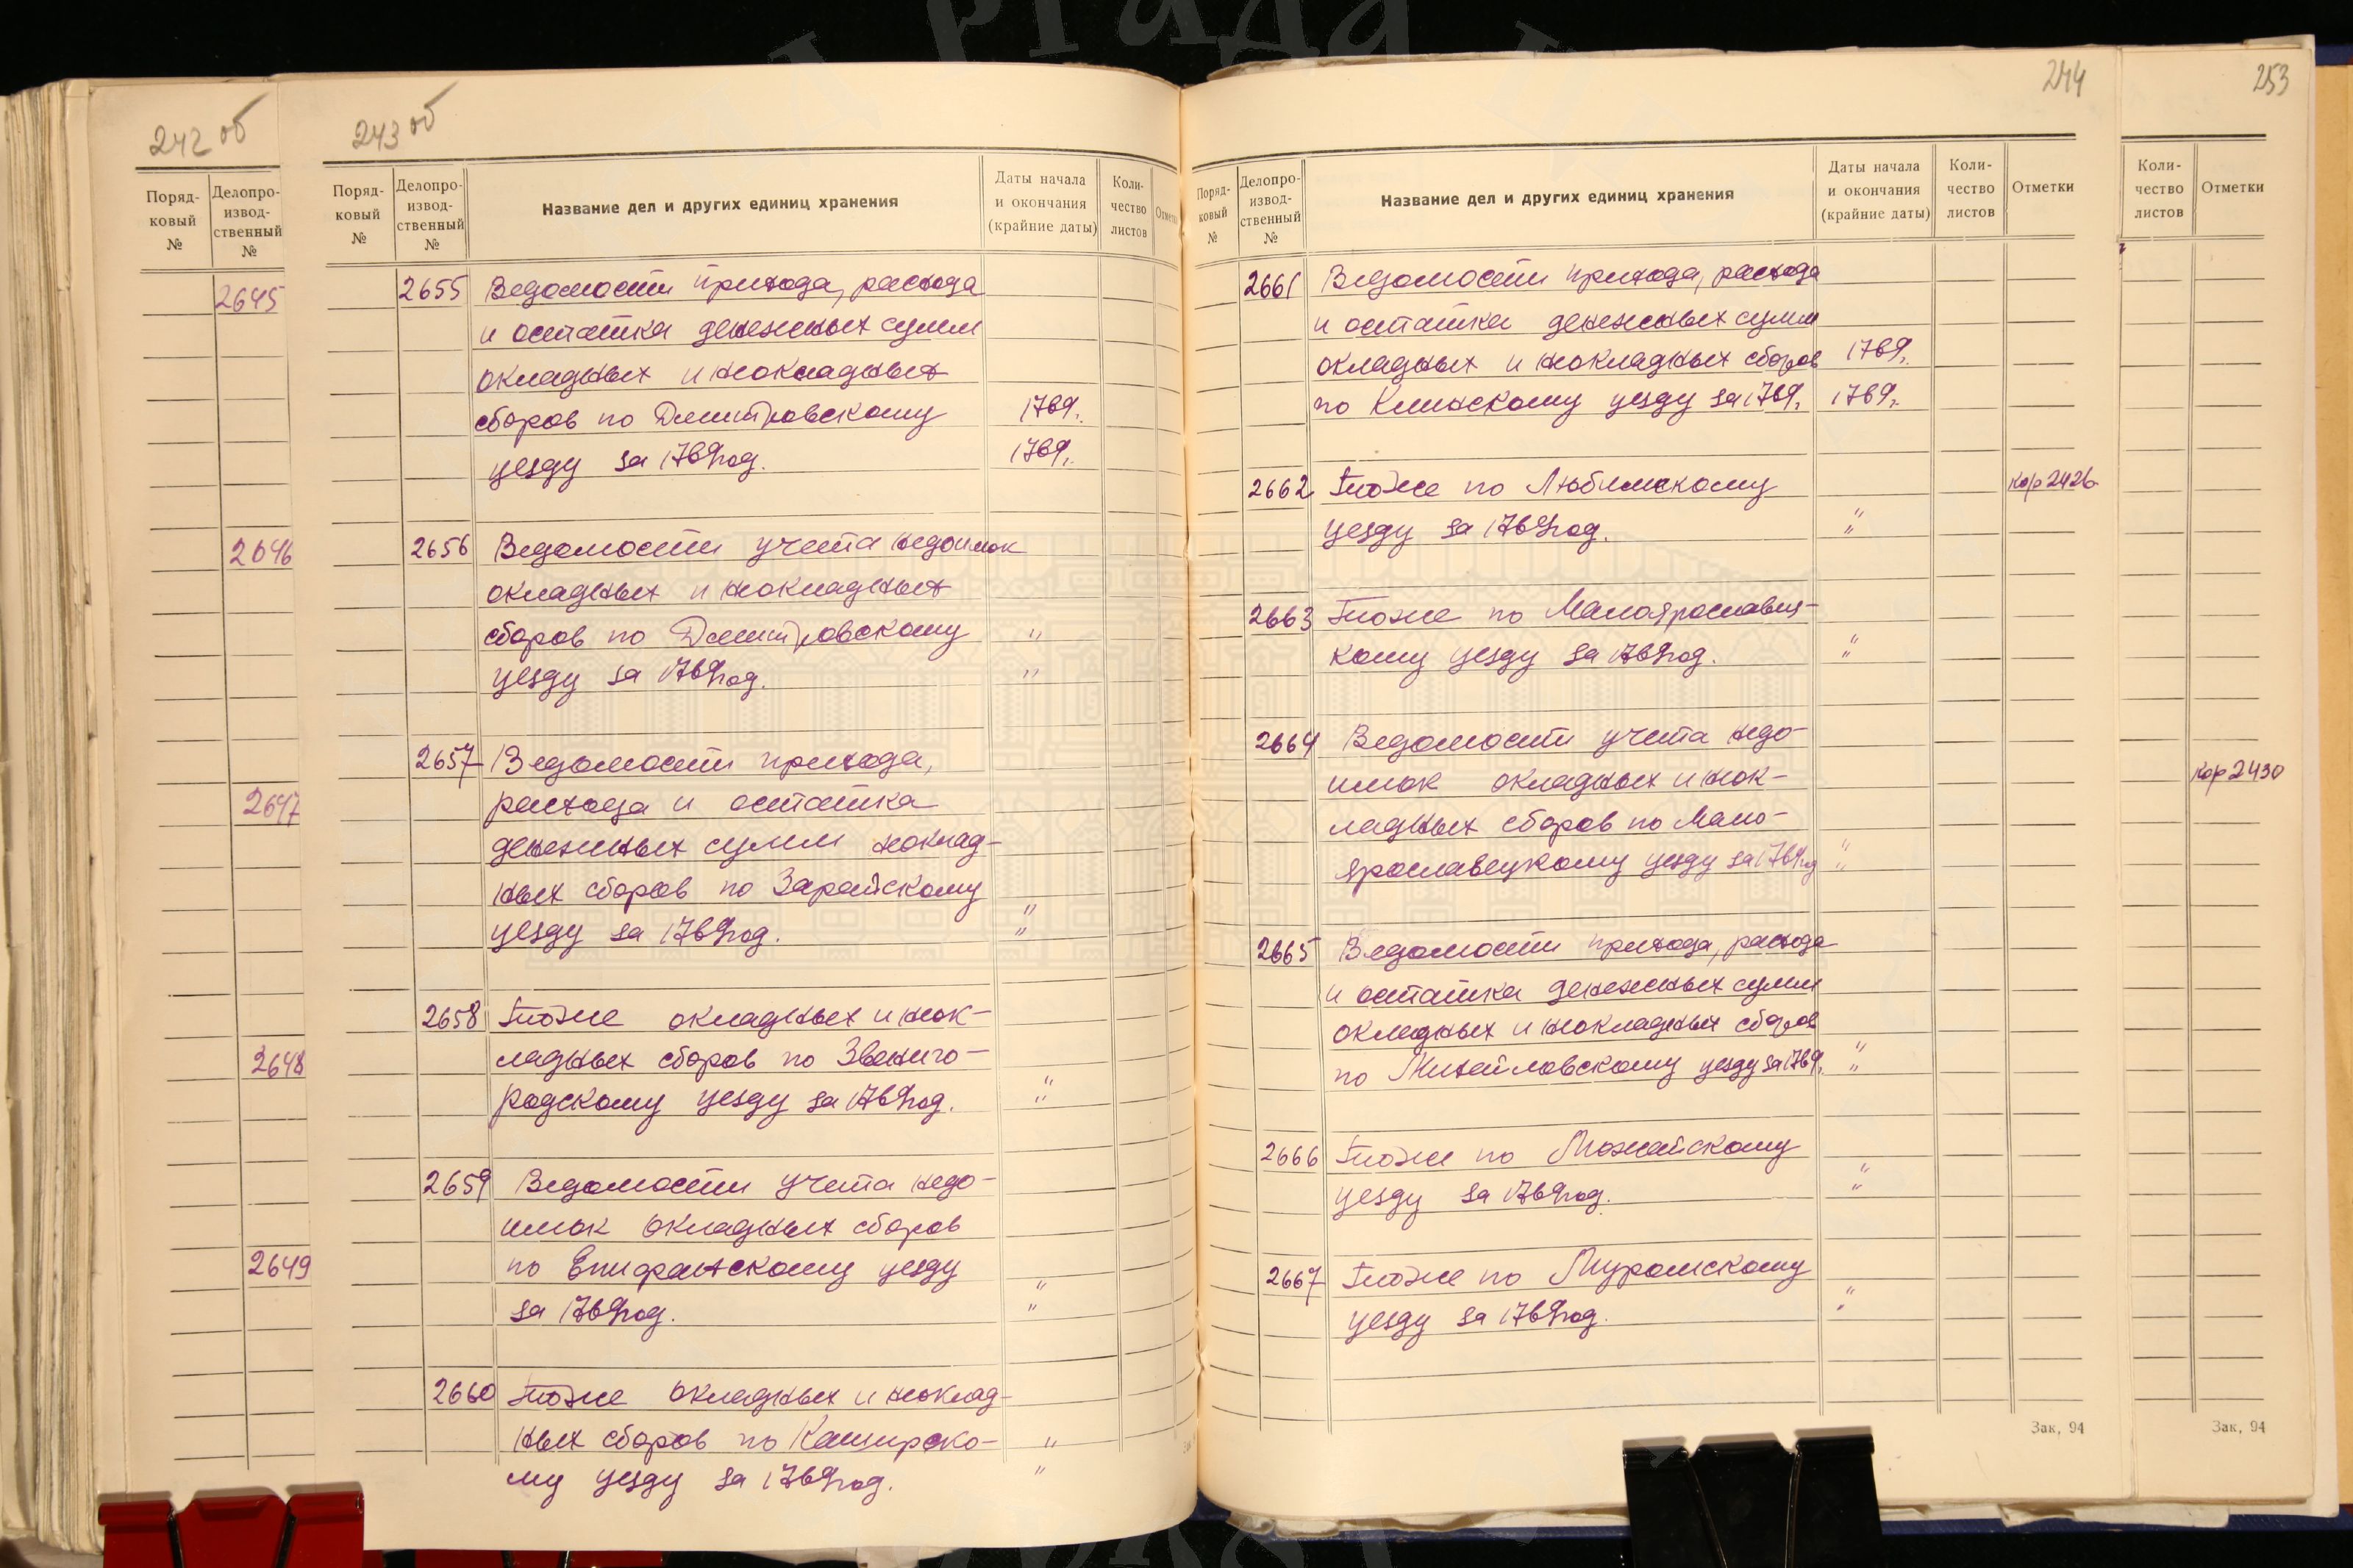 242 об
Поряд-
ковый
№
Делопро-
извод-
ственный
№
2645
2646
2647
2648
2649
243 об
Поряд-
ковый
№
Делопро-
извод-
ственный
№
Название дел и других единиц хранения
Даты начала
и окончания
(крайние даты)
Коли-
чество
листов
2655 Ведомости прихода, расхода
и остатка денежных сумм
окладных и неокладных
сборов по Дмитровскому 1769г.
уезду за 1769год. 1769г.
2656 Ведомости учета недоимок
окладных и неокладных
сборов по Дмитровскому "
уезду за 1769год. "
2657 Ведомости прихода,
расхода и остатка
денежных сумм неоклад-
ных сборов по Зарайскому "
уезду за 1769год. "
2658 То же окладных и неок-
ладных сборов по Звениго-
родскому уезду за 1769год. " "
2659 Ведомости учета недо-
имок окладных сборов
по Епифанскому уезду "
за 1769год. "
2660 То же окладных и неоклад-
ных сборов по Каширско- "
му уезду за 1769год. "
244
Поряд-
ковый
№
Делопро-
извод-
ственный
№
Название дел и других единиц хранения
Даты начала
и окончания
(крайние даты)
Коли-
чество
листов
Отметки
2661 Ведомости прихода, расхода
и остатка денежных сумм
окладных и неокладных сборов 1769г.
по Клинскому уезду за 1769г. 1769г.
2662 То же по Любимскому кор 2426
уезду за 1769год. " "
2663 То же по Малоярославец-
кому уезду за 1769год. " "
2664 Ведомости учета недо-
имок окладных и неок-
ладных сборов по Мало-
ярославецкому уезду за 1769год " "
2665 Ведомости прихода, расхода
и остатка денежных сумм
окладных и неокладных сборов
по Михайловскому уезду за 1769г. " "
2666 То же по Можайскому
уезду за 1769год. " "
2667 То же по Муромскому
уезду за 1769год. " "
Зак. 94
253
Коли-
чество
листов
Отметки
кор 2430
Зак. 94